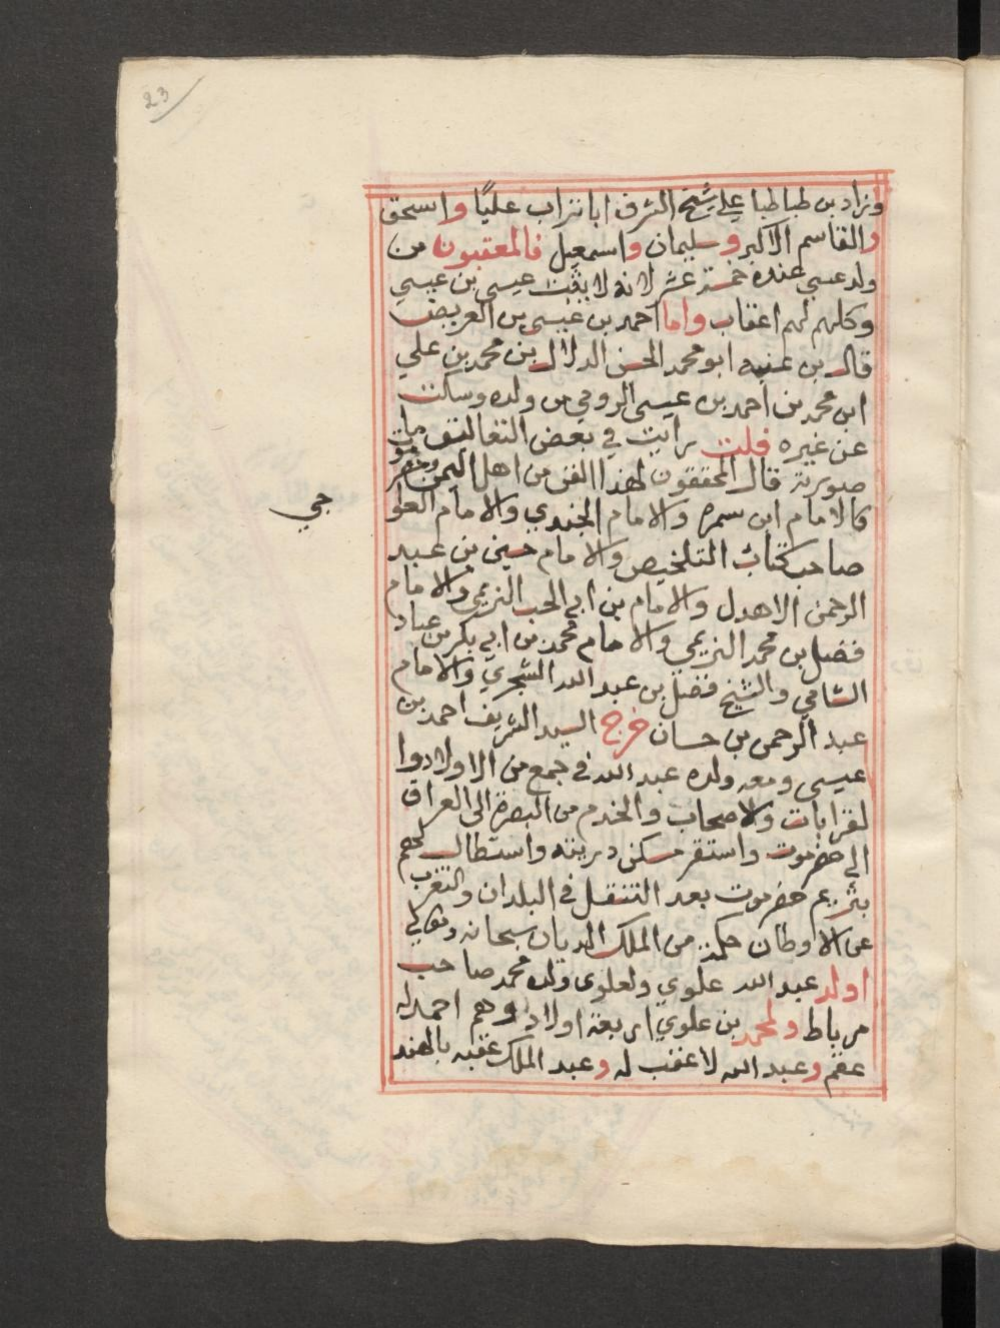 23
وزاد بن طباطبا علي شيخ الشرف ابا تراب عليًا واسحق
والقاسم الاكبر وسليمان واسمعيل فالمعقبون من
ولد عيسي عنده خمسة عشر لانه لا يثبت عيسي بن عيسي
وكلهم لهم اعقاب واما احمد بن عيسي بن العريضي
قال بن عنبه ابو محمد الحسن الدلال بن محمد بن علي
ابن محمد بن احمد بن عيسي الرومي من ولده وسكت
عن غيره قلت رايت في بعض التعاليق ما
صورته قال المحققون لهذا الفن من اهل اليمن وحضرموت
كالامام ابن سمره والامام الجندي والامام العلوا
جي
صاحب كتاب التلخيص والامام حسين بن عبد
الرحمن الاهدل والامام بن ابي الحب التريمي والامام
فضل بن محمد التريمي والامام محمد بن ابي بكر بن عباد
الشامي والشيخ فضل بن عبد الله الشجري والامام
عبد الرحمن بن حسان خرج السيد الشريف احمد بن
عيسى ومعه ولده عبد الله في جمع من الاولاد وا
لقرابات والاصحاب والخدم من البصرة الى العراق
الي حضرموت واستقر مسكن ذريته واستطال لحهم
بتريم حضرموت بعد التنقل في البلدان والتغرب
عن الاوطان حكمة من الملك الديان سبحانه وتعالى
اولد عبد الله علوي ولعلوي ولده محمد صاحب
مرباط ولمحمد بن علوي اربعة اولاد وهم احمد له
عقم وعبد الله لا عقب له وعبد الملك عقبه بالهند